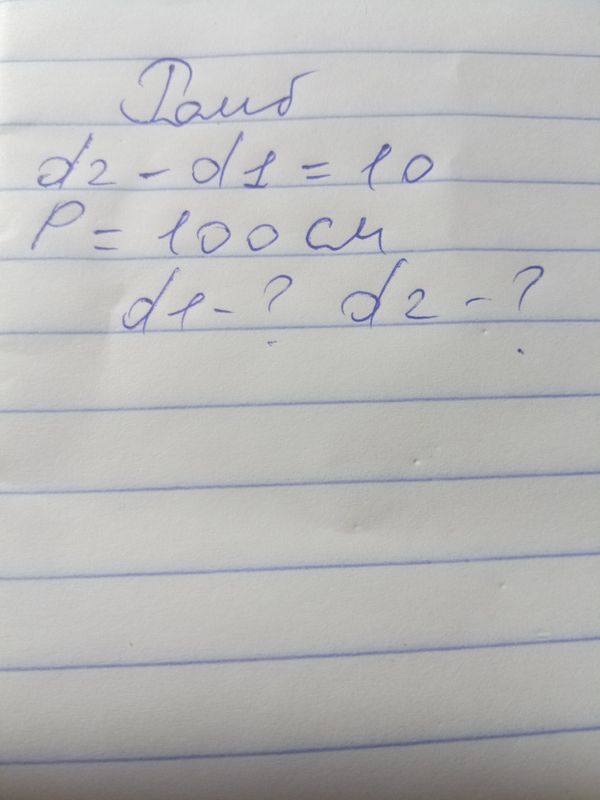 Ромб
d2 - d1 = 10
P = 100 см
d1 - ? d2 - ?